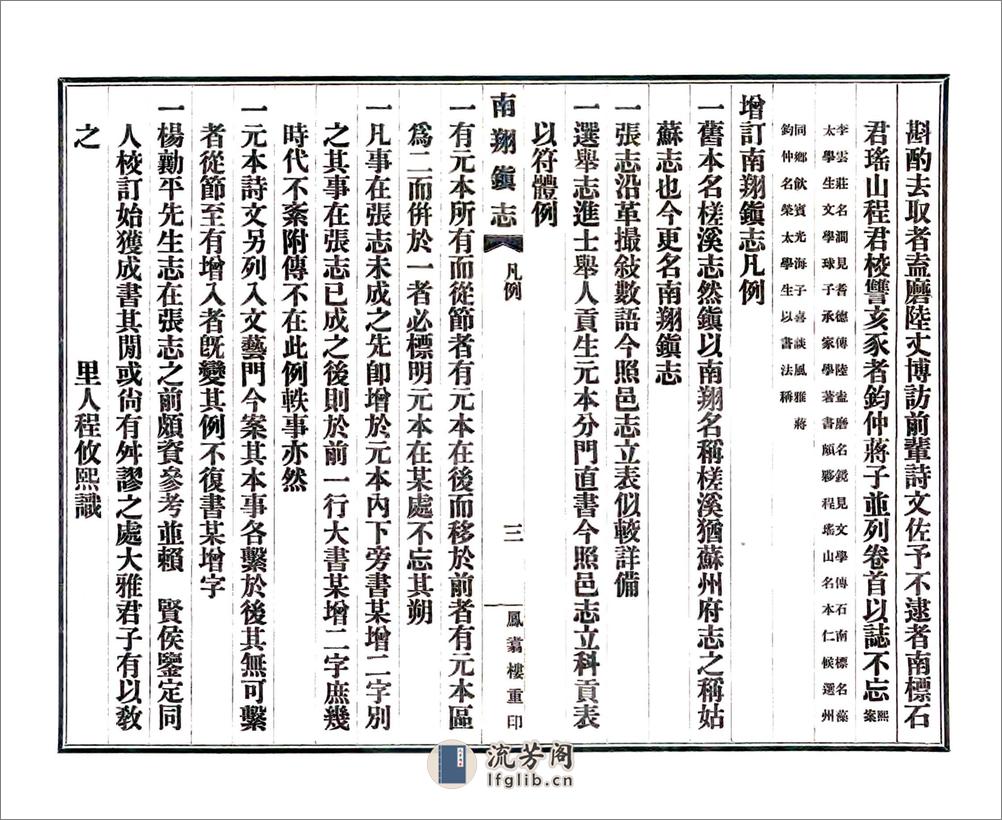 斟酌去取者盍磨陸丈博訪前輩詩文佐予不逮者南標石
君瑤山程君校讐亥豕者鈞仲蔣子並列卷首以誌不忘熙案
李雲莊名澗見耆德傳陸盍磨名鏡見文學傳石南標名藻
太學生文學球子承家學著書頗夥程瑤山名本仁候選州
同鄉飲賓光海子喜談風雅蔣
鈞仲名榮太學生以書法稱
增訂南翔鎭志凡例
一舊本名槎溪志然鎭以南翔名稱槎溪猶蘇州府志之稱姑
蘇志也今更名南翔鎭志
一張志沿革撮敍數語今照邑志立表似較詳備
一選舉志進士舉人貢生元本分門直書今照邑志立科貢表
以符體例
南翔鎭志 凡例 三 鳳翥樓重印
一有元本所有而從節者有元本在後而移於前者有元本區
爲二而併於一者必標明元本在某處不忘其朔
一凡事在張志未成之先卽增於元本內下旁書某增二字別
之其事在張志已成之後則於前一行大書某增二字庶幾
時代不紊附傳不在此例軼事亦然
一元本詩文另列入文藝門今案其本事各繫於後其無可繫
者從節至有增入者旣變其例不復書某增字
一楊勷平先生志在張志之前頗資參考並賴 賢侯鑒定同
人校訂始獲成書其閒或尙有舛謬之處大雅君子有以敎
之 里人程攸熙識
流芳阁
lfglib.cn